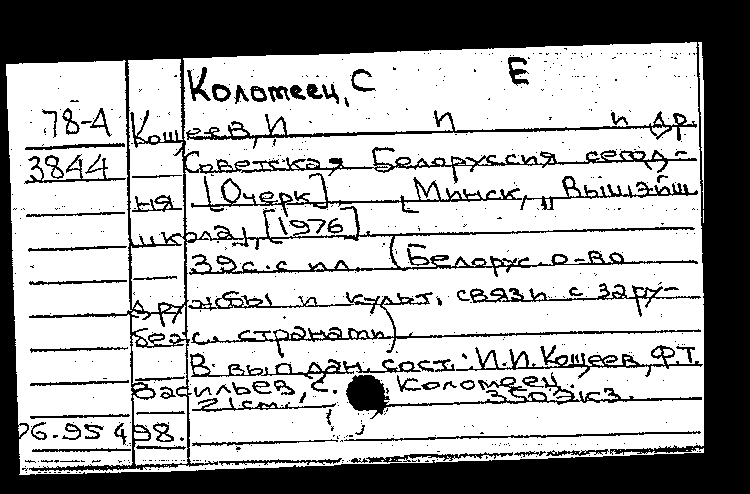 Коломеец, С Е
78-4 Кощеев, И П и др.
3844 Советская Белоруссия сегод-
ня [Очерк]. Минск, „Вышэйш
школа", [1976].
39с. с ил. (Белорус. о-во
дружбы и культ. связи с зару-
беж. странами)
В вып. дан. сост.: И.П. Кощеев, Ф.Т.
Васильев, С. Коломеец.
21см. 350экз.
76.95 498.